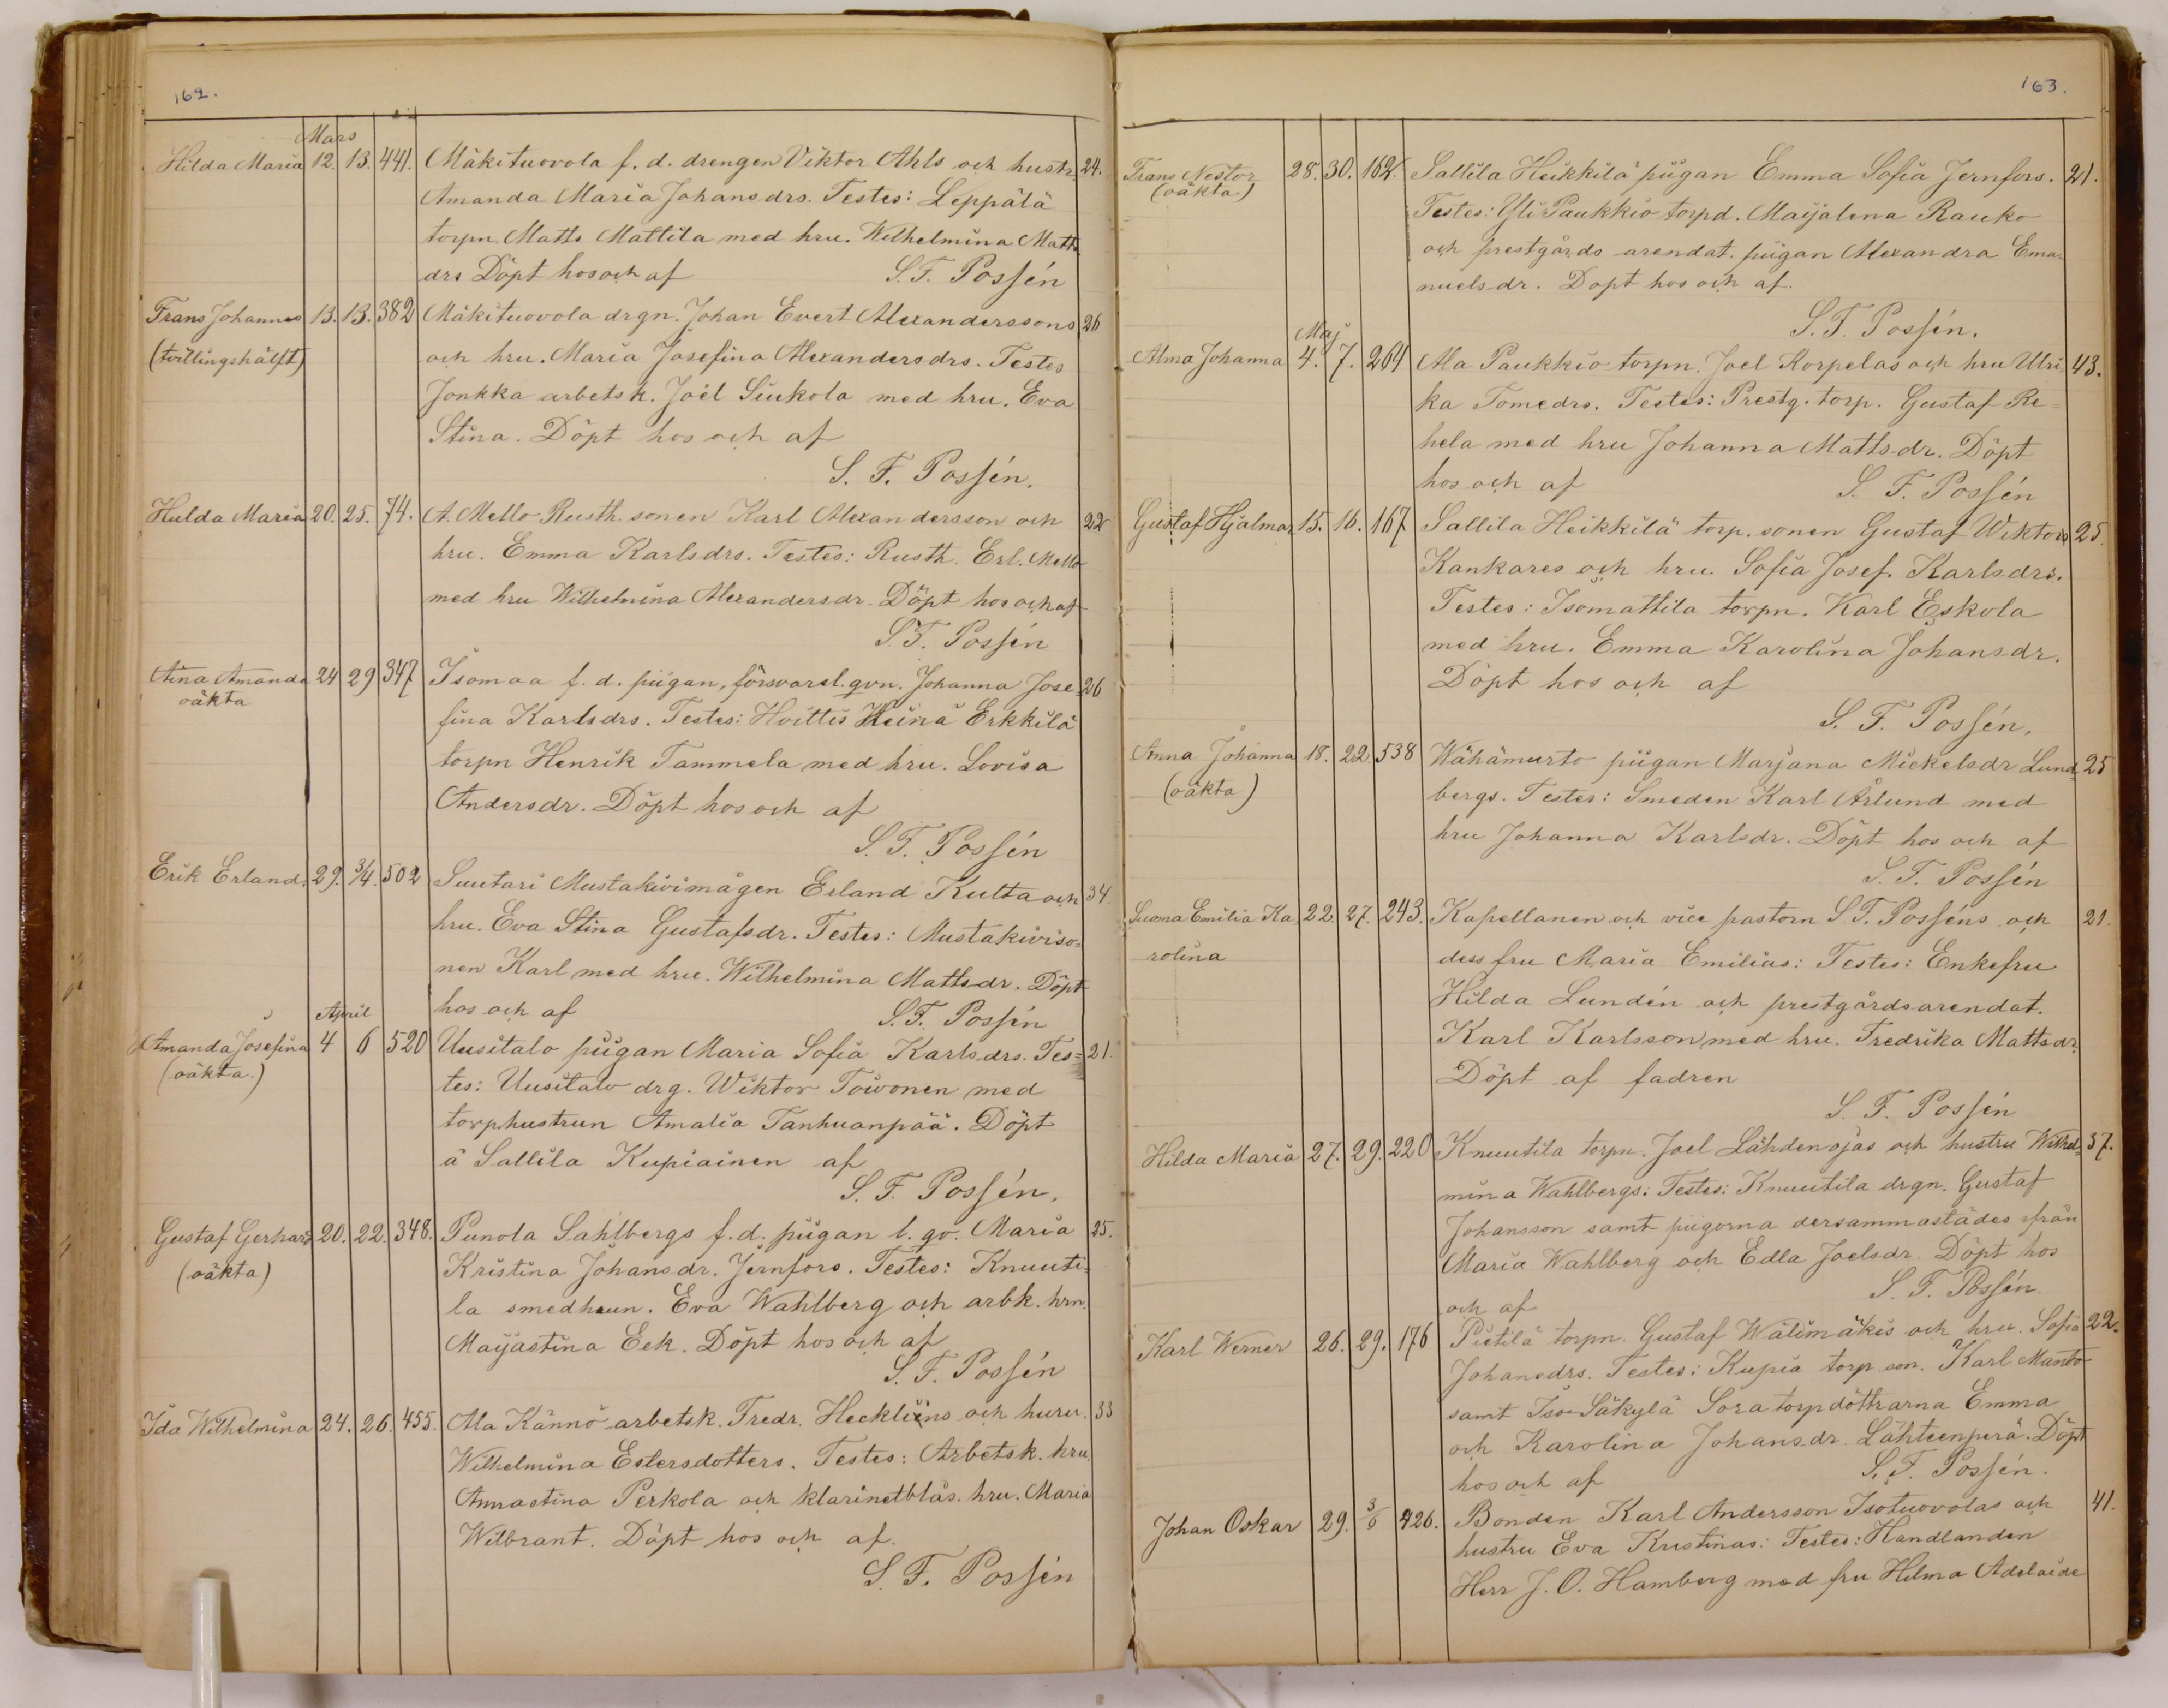 162.
Mars
Hilda Maria 12. 13. 441. Mäkituovola f. d. drengen Viktor Ahls och hustr. 24.
Amanda Maria Johansdrs. Testes: Leppälä
torpn. Matts Mattila med hru. Wilhelmina Matts
drs Döpt hos och af S. F. Possén
Frans Johannes 13. 13. 382 Mäkituovola drgn. Johan Evert Alexanderssons 26
(tvillingshälft) och hru. Maria Josefina Alexandersdrs. Testes
Jonkka arbetsk. Joël Siukola med hru. Eva
Stina. Döpt hos och af
S. F. Possén.
Hulda Maria 20. 25. 74. A. Mello Rusth. sonen Karl Alexandersson och 22
hru. Emma Karlsdrs. Testes: Rusth. Erl. Mello
med hru Wilhelmina Alexandersdr. Döpt hos och af
S. F. Possén
Aina Amanda 24 29 347 Isomaa f. d. pigan, försvarsl. qvn. Johanna Jose- 26
oäkta fina Karlsdrs. Testes: Hvittis Heinä Erkkilä
torpn Henrik Tammela med hru. Lovisa
Andersdr. Döpt hos och af
S. F. Possén
Erik Erland. 29. 3/4. 502 Suutari Mustakivimågen Erland Kutta och 34.
hru. Eva Stina Gustafsdr. Testes: Mustakiviso-
nen Karl med hru. Wilhelmina Mattsdr. Döpt
hos och af S. F. Possén
April
Amanda Josefina 4 6 520 Uusitalo pigan Maria Sofia Karlsdrs. Tes= 21.
(oäkta.) tes: Uusitalo drg. Wiktor Toivonen med
torphustrun Amalia Tanhuanpää. Döpt
å Sallila Kupiainen af
S. F. Possén.
Gustaf Gerhard 20. 22. 348. Punola Sahlbergs f. d. pigan l. qv. Maria 25.
(oäkta) Kristina Johansdr. Jernfors. Testes: Knuuti=
la smedheun. Eva Wahlberg och arbk. hrn.
Maijastina Eek. Döpt hos och af
S. F. Possén
Ida Wilhelmina 24. 26. 455. Ala Kännö arbetsk. Fredr. Hecklins och huru. 33
Wilhelmina Estersdotters. Testes: Arbetsk. hru.
Annastina Perkola och klarinetblås. hru. Maria
Wilbrant. Döpt hos och af.
S. F. Possén
163.
Frans Nestor 28. 30. 162. Sallila Heikkilä pigan Emma Sofia Jernfors. 21.
(oäkta) Testes: Yli Paukkio torpd. Maijalena Rauko
och prestgårds arendat. pigan Alexandra Ema-
nuelsdr. Döpt hos och af.
S. F. Possén.
Maj
Alma Johanna 4. 7. 264 Ala Paukkio torpn. Joel Korpelas och hru Ulri- 43.
ka Tomedrs. Testes: Prestg. torp. Gustaf Re=
hela med hru Johanna Mattsdr. Döpt
hos och af S. F. Possén
Gustaf Hjalmar 15. 16. 167 Sallila Heikkilä torp. sonen Gustaf Wiktors 25.
Kankares och hru. Sofia Josef. Karlsdrs.
Testes: Isomattila torpn. Karl Eskola
med hru. Emma Karolina Johansdr.
Döpt hos och af
S. F. Possén.
Anna Johanna 18. 22. 538 Wähämurto pigan Marjana Mickelsdr Lund- 25
(oäkta) bergs. Testes: Smeden Karl Ärlund med
hru Johanna Karlsdr. Döpt hos och af
S. F. Possén
Suoma Emilia Ka- 22. 27. 243. Kapellanen och vice pastorn S. F. Posséns och 21.
rolina dess fru Maria Emilias: Testes: Enkefru
Hilda Lundén och prestgårdsarendat.
Karl Karlsson med hru. Fredrika Mattsdr.
Döpt af fadren
S. F. Possén
Hilda Maria 27. 29. 220 Knuutila torpn. Joel Lähdenojas och hustru Wilhel- 37.
mina Wahlbergs: Testes: Knuutila drgn. Gustaf
Johansson samt pigorna dersammastädes ifrån
Maria Wahlberg och Edla Joelsdr. Döpt hos
och af S. F. Possén.
Karl Werner 26. 29. 176 Pietilä torpn. Gustaf Wälimäkis och hru. Sofia 22.
Johansdrs. Testes: Kupia torp son. Karl Manto
samt Iso-Säkylä Sora torpdöttrarna Emma
och Karolina Johansdr. Lähteenperä. Döpt
hos och af S. F. Possén.
Johan Oskar 29. 3/6 426. Bonden Karl Andersson Isotuovolas och 41.
hustru Eva Kristinas: Testes: Handlanden
Herr J. O. Hamberg med fru Hilma Adelaide